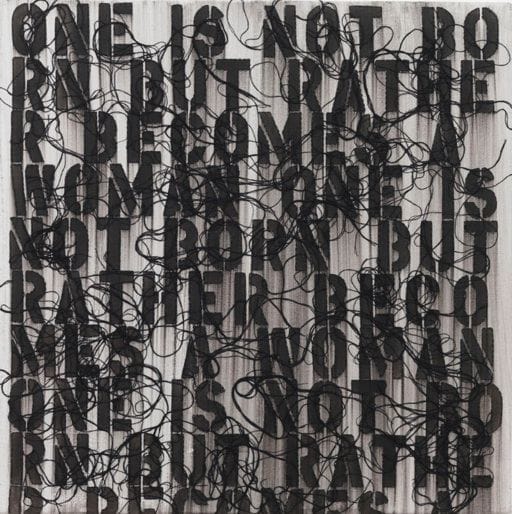 ONE IS NOT BO
RN BUT RATHE
R BECOMES A
WOMAN ONE IS
NOT BORN BUT
RATHER BECO
MES A WOMAN
ONE IS NOT BO
RN BUT RATHE
R BECOMES A